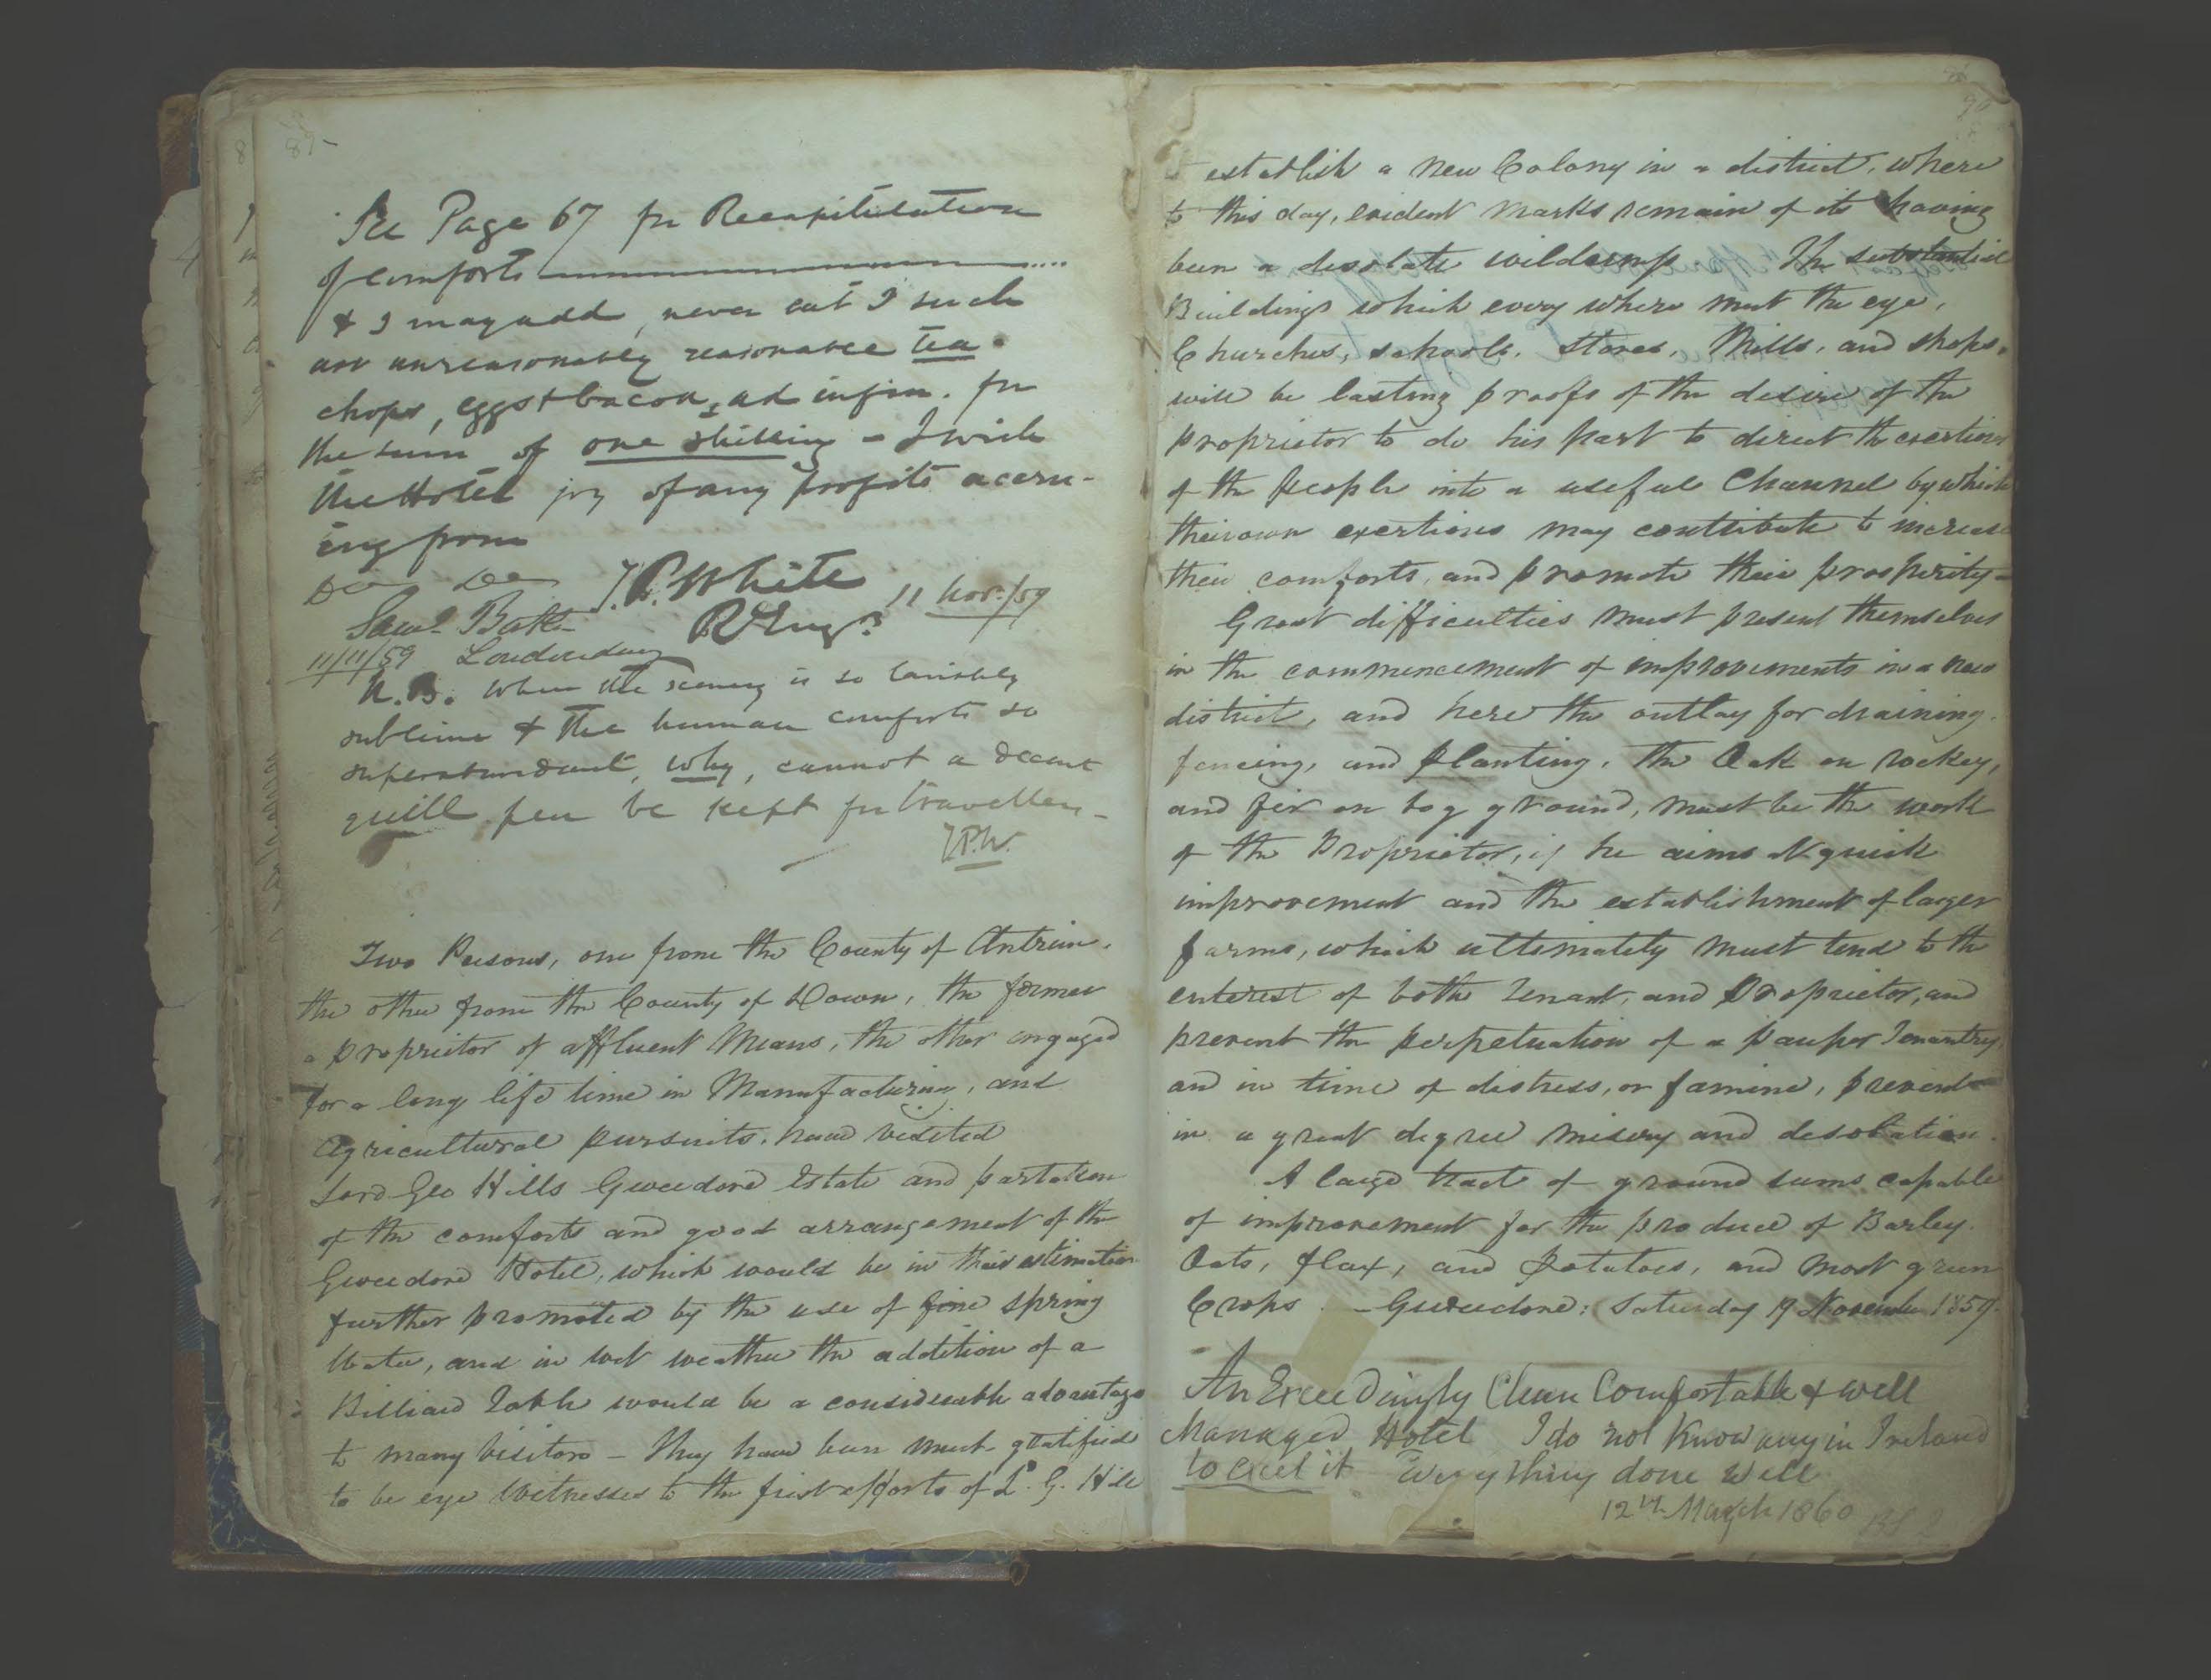 89-
See Page 67 for Recapitulation
of comforts ....
& I may add, never eat I such
an unreasonably reasonable tea.
chops, eggs & bacon, ad infin. for
the sum of one shilling - I wish
the Hotel joy of any profits accru-
ing from
Do Do J.P. White
Saml. 11 Nov./59
11/11/59 Londonderry
N.B. When the scenery is so lavishly
sublime & the human comforts so
superabundant, why, cannot a decent
quill pen be kept for travellers -
J.P.W.
Two Persons, one from the County of Antrim,
the other from the County of Down, the former
a proprietor of affluent Means, the other engaged
for a long life time in Manufacturing, and
Agricultural pursuits. have visited
Lord Geo Hills Gweedore Estate and partaken
of the comforts and good arrangement of the
Gweedore Hotel, which would be in their estimation
further promoted by the use of fine spring
Water, and in wet weather the addition of a
Billiard Table would be a considerable advantage
to many visitors - They have been much gratified
to be eye Witnesses to the first efforts of L. G. Hill
90
establish a New Colony in a district, where
to this day, evident marks remain of its having
been a desolate wilderness The substantial
Buildings which every where meet the eye,
Churches, schools, Stores, Mills, and shops,
will be lasting proofs of the desire of the
proprietor to do his part to direct the exertions
of the people into a useful Channel by which
their own exertions may contribute to increase
their comforts, and promote their prosperity -
Great difficulties must present themselves
in the commencement of improvements in a new
district, and here the outlay for draining,
fencing, and planting, the Oak on rockey,
and fir on bog ground, must be the work
of the Proprietor, if he aims at quick
improvement and the establishment of larger
farms, which ultimately must tend to the
enterest of both Tenant, and Proprietor, and
prevent the perpetuation of a pauper Tenantry,
and in time of distress, or famine, prevent
in a great degree misery and desolation.
A large tract of ground seems capable
of improvement for the produce of Barley,
Oats, flax, and Potatoes, and most green
Crops. - Gweedore: Saturday 19 November 1859.
An Exceedingly Clean Comfortable & well
Managed Hotel I do not know any in Ireland
to excel it Every thing done well
12th March 1860